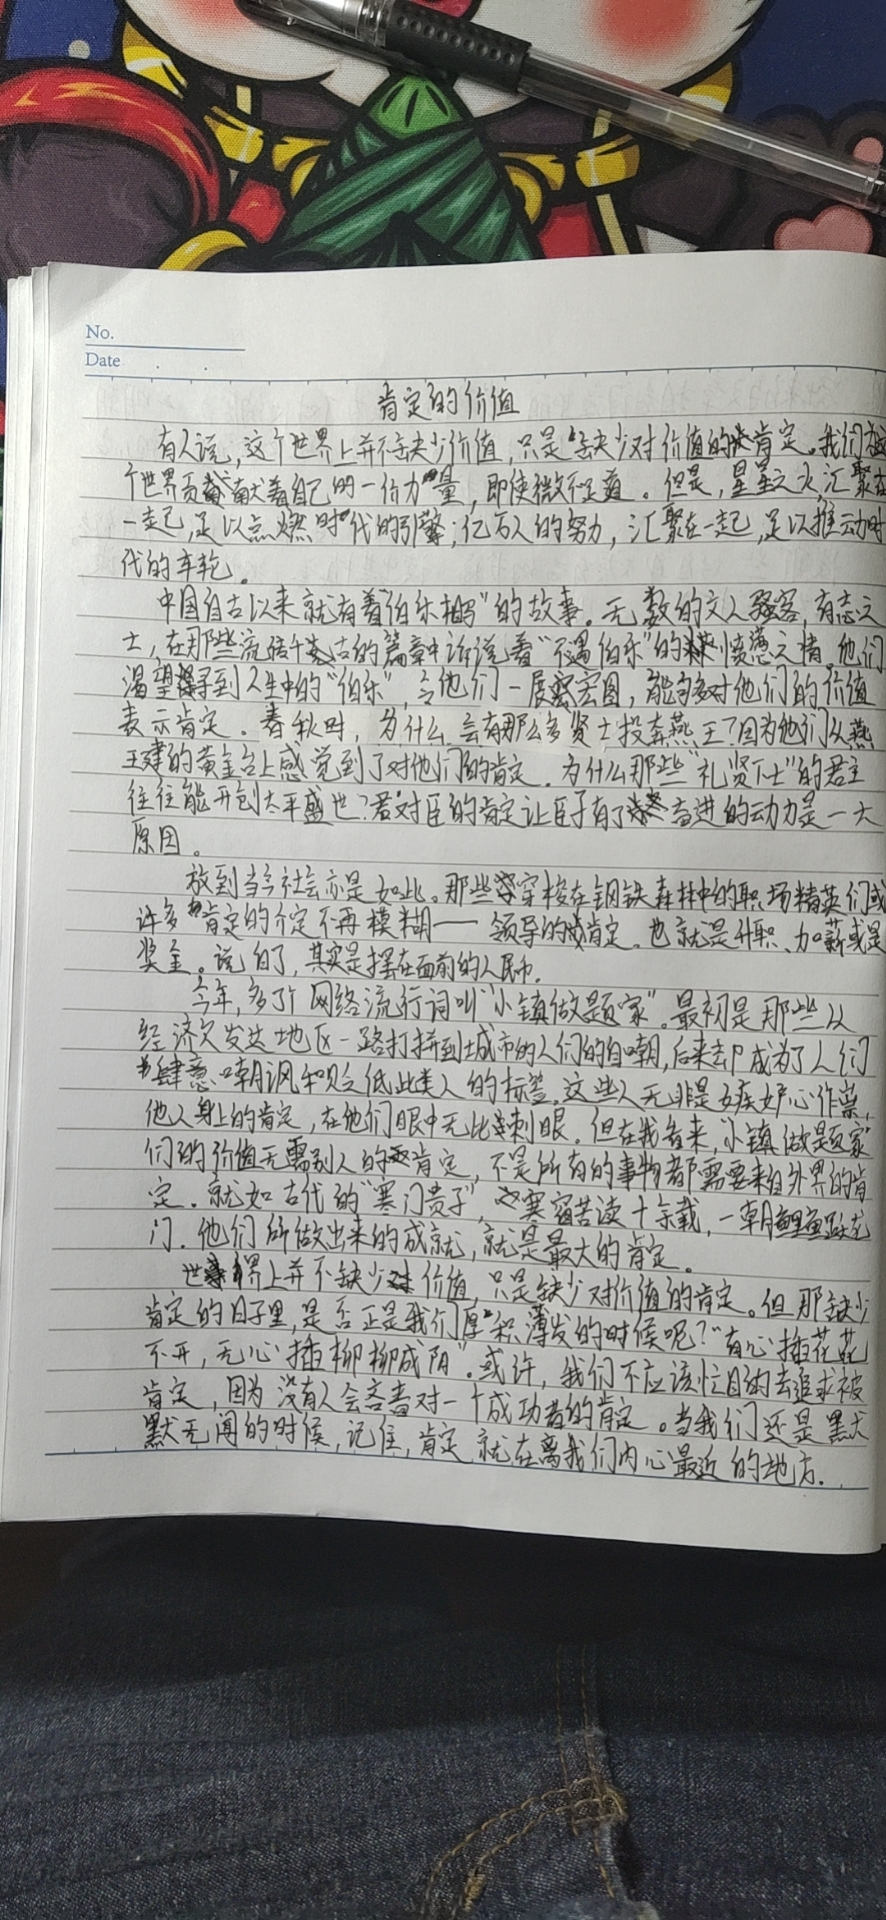 No.
Date
肯定的价值
有人说,这个世界上并不缺少价值,只是缺少对价值的肯定。我们在这
个世界贡献着自己的一份力量,即使微不足道。但是,星星之火,汇聚在
一起,足以点燃时代的引擎;亿万人的努力,汇聚在一起,足以推动时
代的车轮。
中国自古以来就有着"伯乐相马"的故事。无数的文人骚客,有志之
士,在那些流传千古的篇章中诉说着"不遇伯乐"的愤懑之情。他们
渴望得到人生中的"伯乐",令他们一展宏图,能够对他们的价值
表示肯定。春秋时,为什么会有那么多贤士投奔燕王?因为他们从燕
王建的黄金台上感觉到了对他们的肯定。为什么那些"礼贤下士"的君主
往往能开创太平盛世?君对臣的肯定让臣子有了奋进的动力是一大
原因。
放到当今社会亦是如此。那些穿梭在钢铁森林中的职场精英们或
许多肯定的介定不再模糊——领导的肯定。也就是升职、加薪或是
奖金。说白了,其实是摆在面前的人民币。
今年,多了个网络流行词叫"小镇做题家"。最初是那些从
经济欠发达地区一路打拼到城市的人们的自嘲,后来却成为了人们
肆意嘲讽和贬低此类人的标签。这些人无非是嫉妒心作祟,
他人身上的肯定,在他们眼中无比刺眼。但在我看来,"小镇做题家"
们的价值无需别人的肯定,不是所有的事物都需要来自外界的肯
定。就如古代的"寒门贵子",寒窗苦读十余载,一朝鲤鱼跃龙
门。他们所做出来的成就,就是最大的肯定。
世界上并不缺少价值,只是缺少对价值的肯定。但那缺少
肯定的日子里,是否正是我们厚积薄发的时候呢?"有心插花花
不开,无心插柳柳成阴"。或许,我们不应该忙目的去追求被
肯定,因为没有人会吝啬对一个成功者的肯定。当我们还是默
默无闻的时候,记住,肯定就在离我们内心最近的地方.